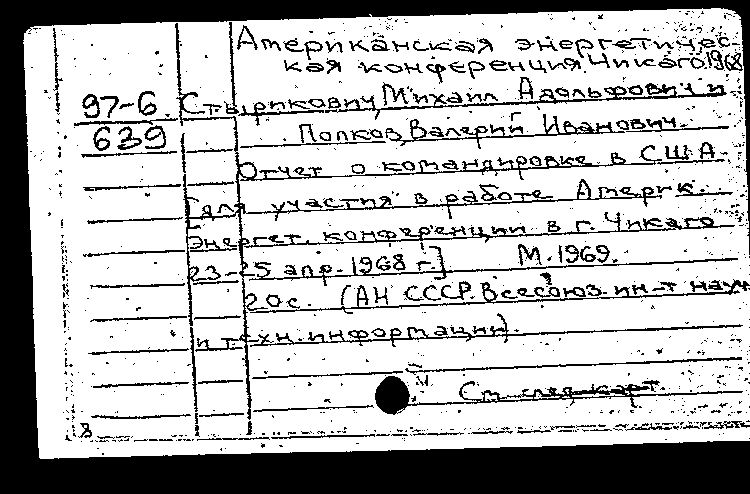 Американская энергетичес-
кая конференция, Чикаго 1968
97-6 Стырикович, Михаил Адольфович и
639 Попков, Валерий Иванович.
Отчет о командировке в США
[для участия в работе Америк.
энергет. конференции в г. Чикаго
23-25 апр. 1968 г.] М. 1969.
20с. (АН СССР. Всесоюз. ин-т науч
и техн. информации).
См. след. карт.
8